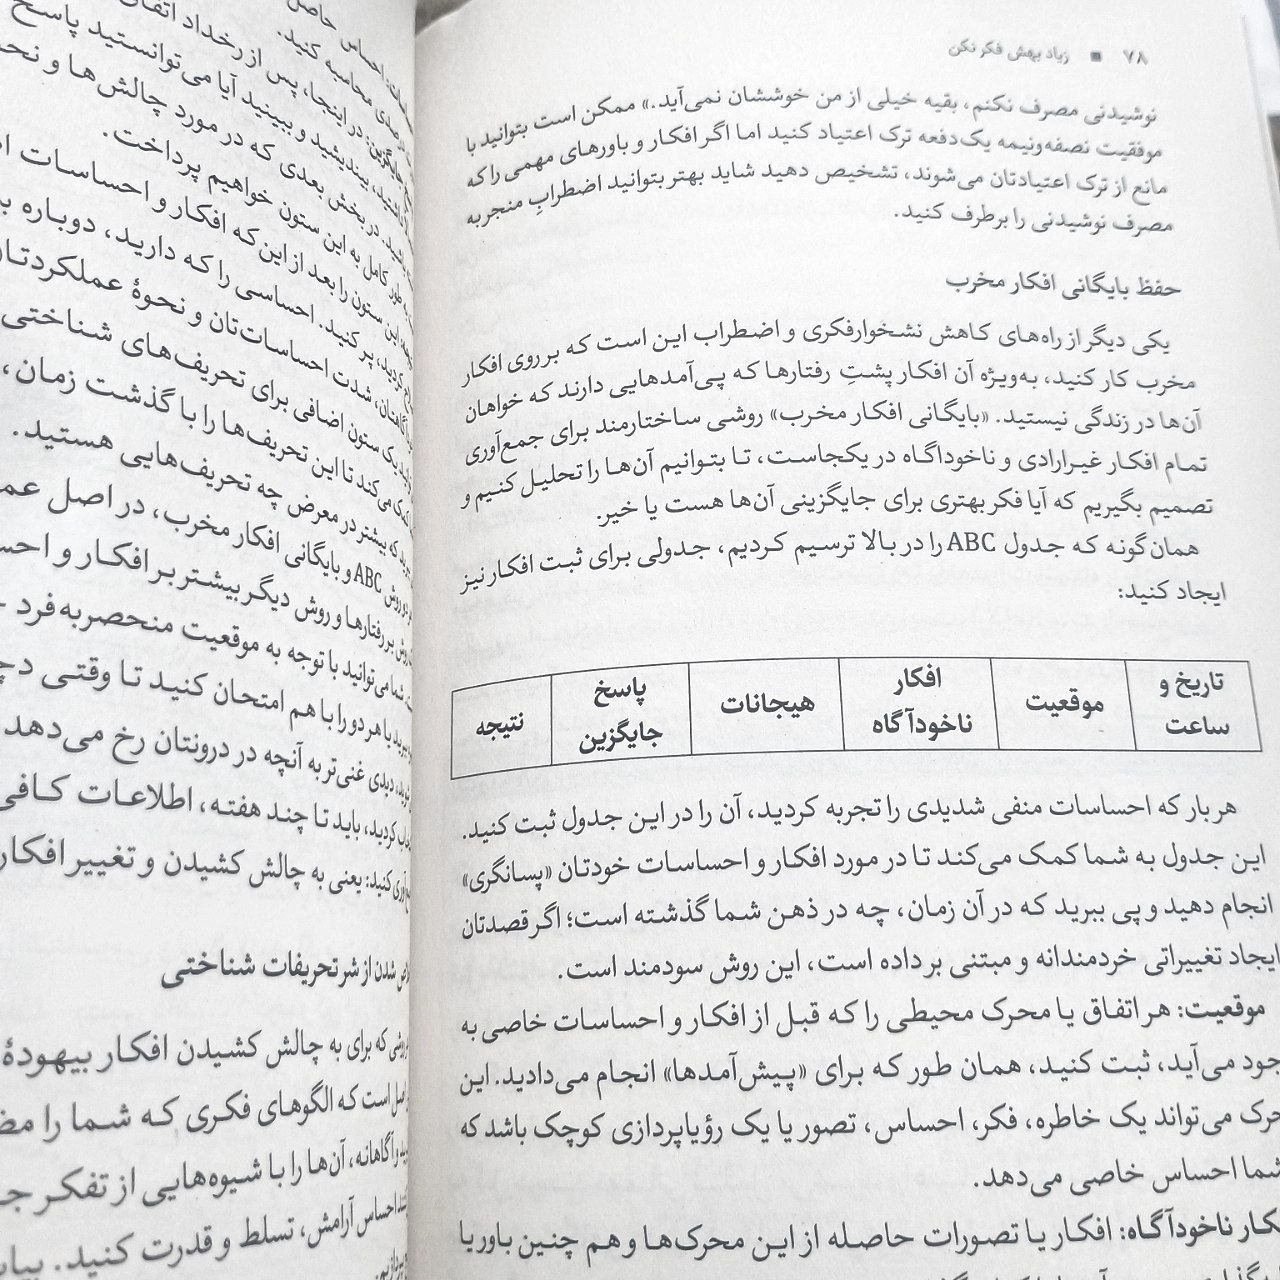 ۷۸ ■ زیاد بهش فکر نکن
نوشیدنی مصرف نکنم، بقیه خیلی از من خوششان نمی‌آید.» ممکن است بتوانید با
موفقیت نصفه‌ونیمه یک‌دفعه ترک اعتیاد کنید اما اگر افکار و باورهای مهمی را که
مانع از ترک اعتیادتان می‌شوند، تشخیص دهید شاید بهتر بتوانید اضطرابِ منجر به
مصرف نوشیدنی را برطرف کنید.
حفظ بایگانی افکار مخرب
یکی دیگر از راه‌های کاهش نشخوارفکری و اضطراب این است که بر روی افکار
مخرب کار کنید، به‌ویژه آن افکار پشتِ رفتارها که پی‌آمدهایی دارند که خواهان
آن‌ها در زندگی نیستید. «بایگانی افکار مخرب» روشی ساختارمند برای جمع‌آوری
تمام افکار غیرارادی و ناخودآگاه در یکجاست، تا بتوانیم آن‌ها را تحلیل کنیم و
تصمیم بگیریم که آیا فکر بهتری برای جایگزینی آن‌ها هست یا خیر.
همان‌گونه که جدول ABC را در بالا ترسیم کردیم، جدولی برای ثبت افکار نیز
ایجاد کنید:
تاریخ و ساعت
موقعیت
افکار ناخودآگاه
هیجانات
پاسخ جایگزین
نتیجه
هر بار که احساسات منفی شدیدی را تجربه کردید، آن را در این جدول ثبت کنید.
این جدول به شما کمک می‌کند تا در مورد افکار و احساسات خودتان «پسانگری»
انجام دهید و پی ببرید که در آن زمان، چه در ذهن شما گذشته است؛ اگر قصدتان
ایجاد تغییراتی خردمندانه و مبتنی بر داده است، این روش سودمند است.
موقعیت: هر اتفاق یا محرک محیطی را که قبل از افکار و احساسات خاصی به
جود می‌آید، ثبت کنید، همان طور که برای «پیش‌آمدها» انجام می‌دادید. این
حرک می‌تواند یک خاطره، فکر، احساس، تصور یا یک رؤیاپردازی کوچک باشد که
شما احساس خاصی می‌دهد.
کار ناخودآگاه: افکار یا تصورات حاصله از این محرک‌ها و هم چنین باور یا
احساس حاصل
محاسبه کنید.
جایگزین: در اینجا، پس از رخداد اتفا
بیندیشید و ببینید آیا می‌توانستید پاسخ
در بخش بعدی که در مورد چالش‌ها و نح
طور کامل به این ستون خواهیم پرداخت.
این ستون را بعد از این‌که افکار و احساسات
پر کنید. احساسی را که دارید، دوباره
شدت احساسات‌تان و نحوهٔ عملکردتان
یک ستون اضافی برای تحریف‌های شناختی
کمک می‌کند تا این تحریف‌ها را با گذشت زمان،
که بیشتر در معرض چه تحریف‌هایی هستید.
روش ABC و بایگانی افکار مخرب، در اصل عم
روش بر رفتارها و روش دیگر بیشتر بر افکار و احس
شما می‌توانید با توجه به موقعیت منحصربه‌فرد
یا هر دو را با هم امتحان کنید تا وقتی
دیدی غنی‌تر به آنچه در درونتان رخ می‌دهد
کردید، باید تا چند هفته، اطلاعات کافی
آوری کنید: یعنی به چالش کشیدن و تغییر افکار
شدن از شر تحریفات شناختی
روشی که برای به چالش کشیدن افکار بیهودهٔ
اصل است که الگوهای فکری که شما را
آگاهانه، آن‌ها را با شیوه‌هایی از تفکر
احساس آرامش، تسلط و قدرت کنید.